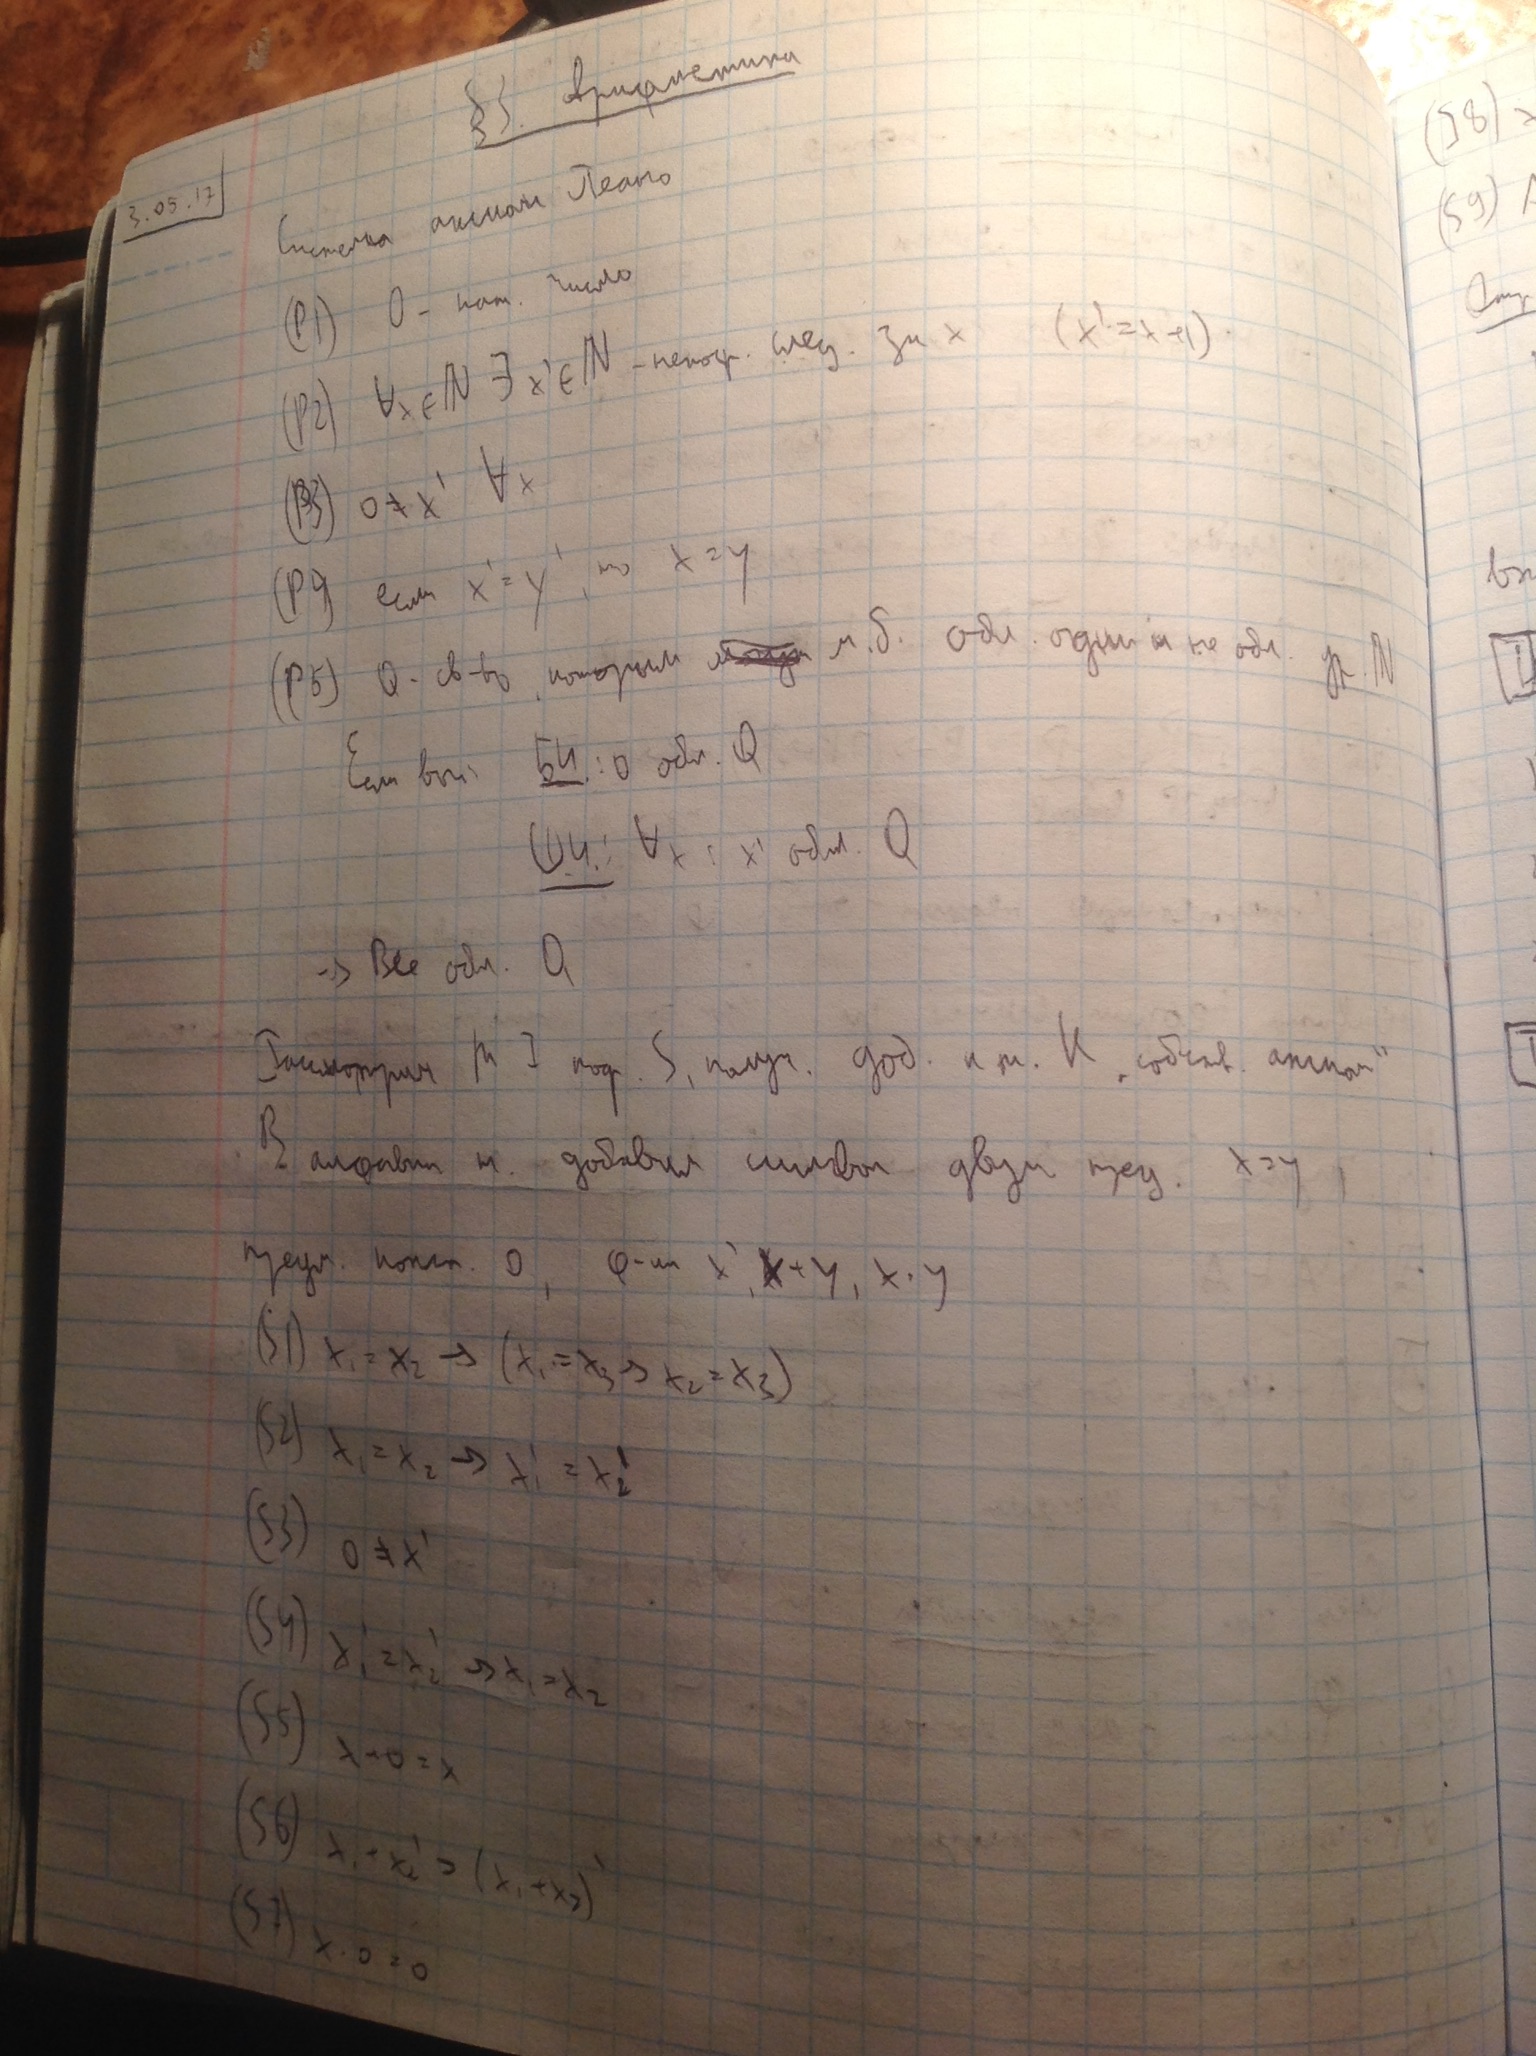 §3. Арифметика
3.05.17
Система аксиом Пеано
(P1) 0 - нат. число
(P2) ∀x∈ℕ ∃x'∈ℕ - непоср. след. за x (x' = x+1).
(P3) 0 ≠ x' ∀x
(P4) если x' = y', то x = y
(P5) Q - св-во, которым м.б. обл. одни и не обл. др. ℕ
Если вып: БИ: 0 обл. Q
ШИ: ∀x: x' обл. Q
→ Все обл. Q
Рассмотрим S, получ. доб. к K „собств. аксиом"
В алфавит добавил символ двум. x = y,
конст. 0, ф-ии x', x+y, x·y
(S1) x₁ = x₂ → (x₁ = x₃ → x₂ = x₃)
(S2) x₁ = x₂ → x₁' = x₂'
(S3) 0 ≠ x'
(S4) x₁' = x₂' → x₁ = x₂
(S5) x + 0 = x
(S6) x₁ + x₂' = (x₁ + x₂)'
(S7) x · 0 = 0
(S8) x
(S9)